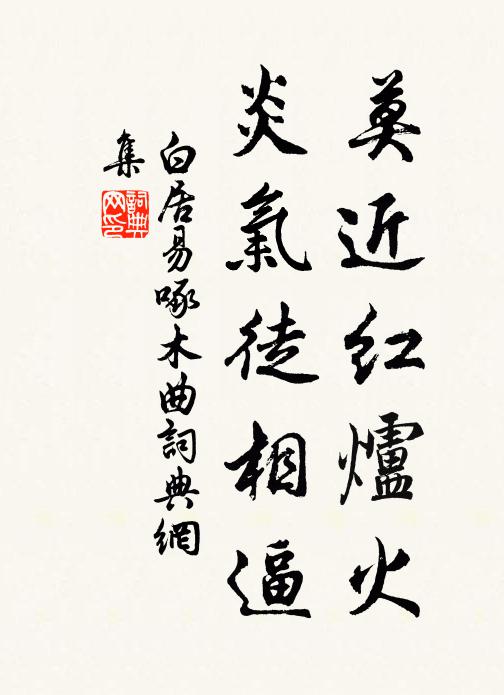 莫近紅爐火
炎氣徒相逼
白居易啄木曲詞典網
集
詞典
网印